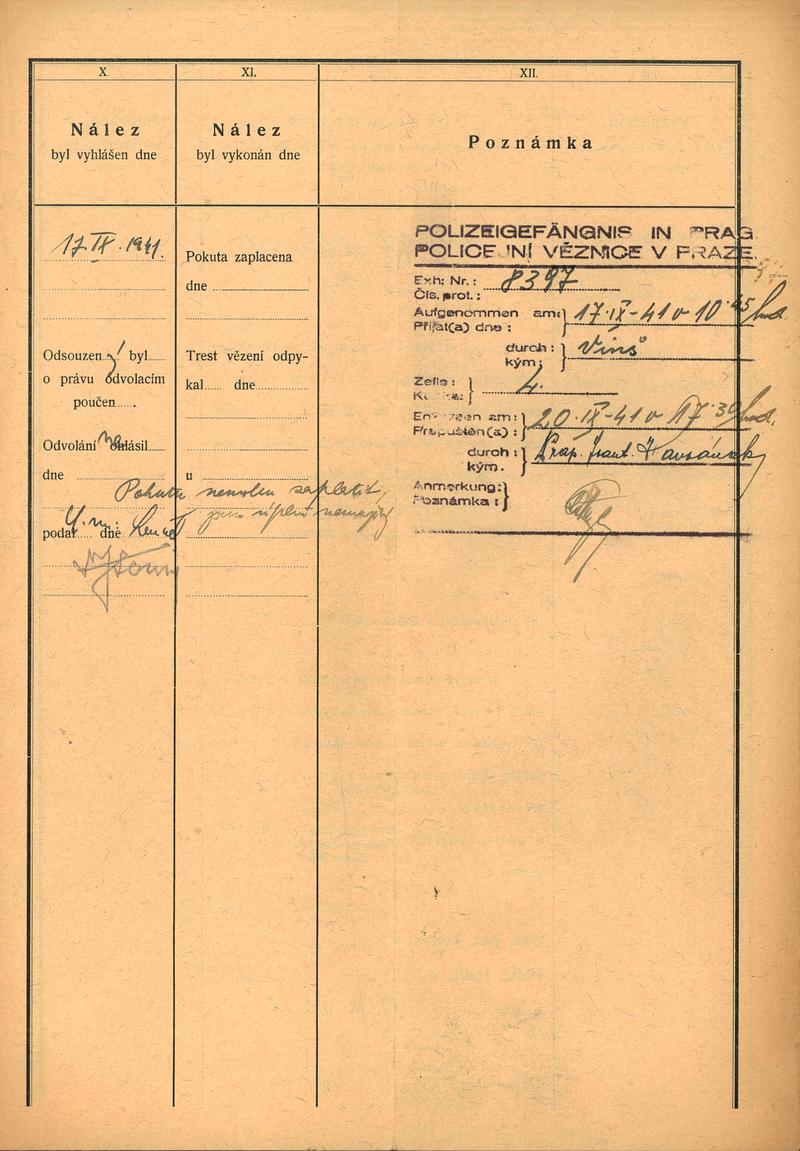 X.
Nález
byl vyhlášen dne
17. IX. 1941.
Odsouzen ý byl.....
o právu odvolacím
poučen.....
Odvolání neohlásil.....
dne
podal..... dne
XI.
Nález
byl vykonán dne
Pokuta zaplacena
dne
Trest vězení odpy-
kal..... dne
u
Pokutu nemohu zaplatit,
jsem úplně nemajetný
XII.
Poznámka
POLIZEIGEFÄNGNIS IN PRAG.
POLICEJNÍ VĚZNICE V PRAZE.
Exh: Nr.: 8397
Čís. prot.:
Aufgenommen am: 17.IX-41 v 10.45 hod
Přijat(a) dne:
durch: Vinš
kým:
Zelle: 4.
Entlassen am: 20.IX-41 v 17.30 hod.
Propuštěn(a):
durch: Prap. Frant.
kým.
Anmerkung:
Poznámka: